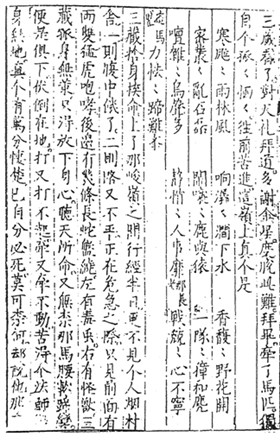 三藏看了對天礼拜道多謝金星度脫此難拜畢牽了馬匹獨
自个孤〻恓〻往前苦進這嶺上真个是
寒颯〻雨林風 響潺〻澗下水 香馥〻野花開
密叢〻乱石磊 鬧嚷〻鹿與猿 一隊〻獐和麂
喧雜〻鳥聲多 靜悄〻人事靡 那長老戰兢〻心不寧
這馬力怯〻蹄難舉
三藏捨身拚命上了那峻嶺之間行經半日更不見个人烟村
舍一則腹中饑了二則路又不平正在危急之際只見前面有
兩隻猛虎咆哮後邊有幾條長蛇盤繞左有毒虫右有怪獸三
藏孤身無策只得放下身心聽天所命又無奈那馬腰軟蹄彎
便屎俱下伏倒在地打又打不起牽又牽不動苦得个法師襯
身無地真个有萬分悽楚已自分必死莫可奈何却說他雖